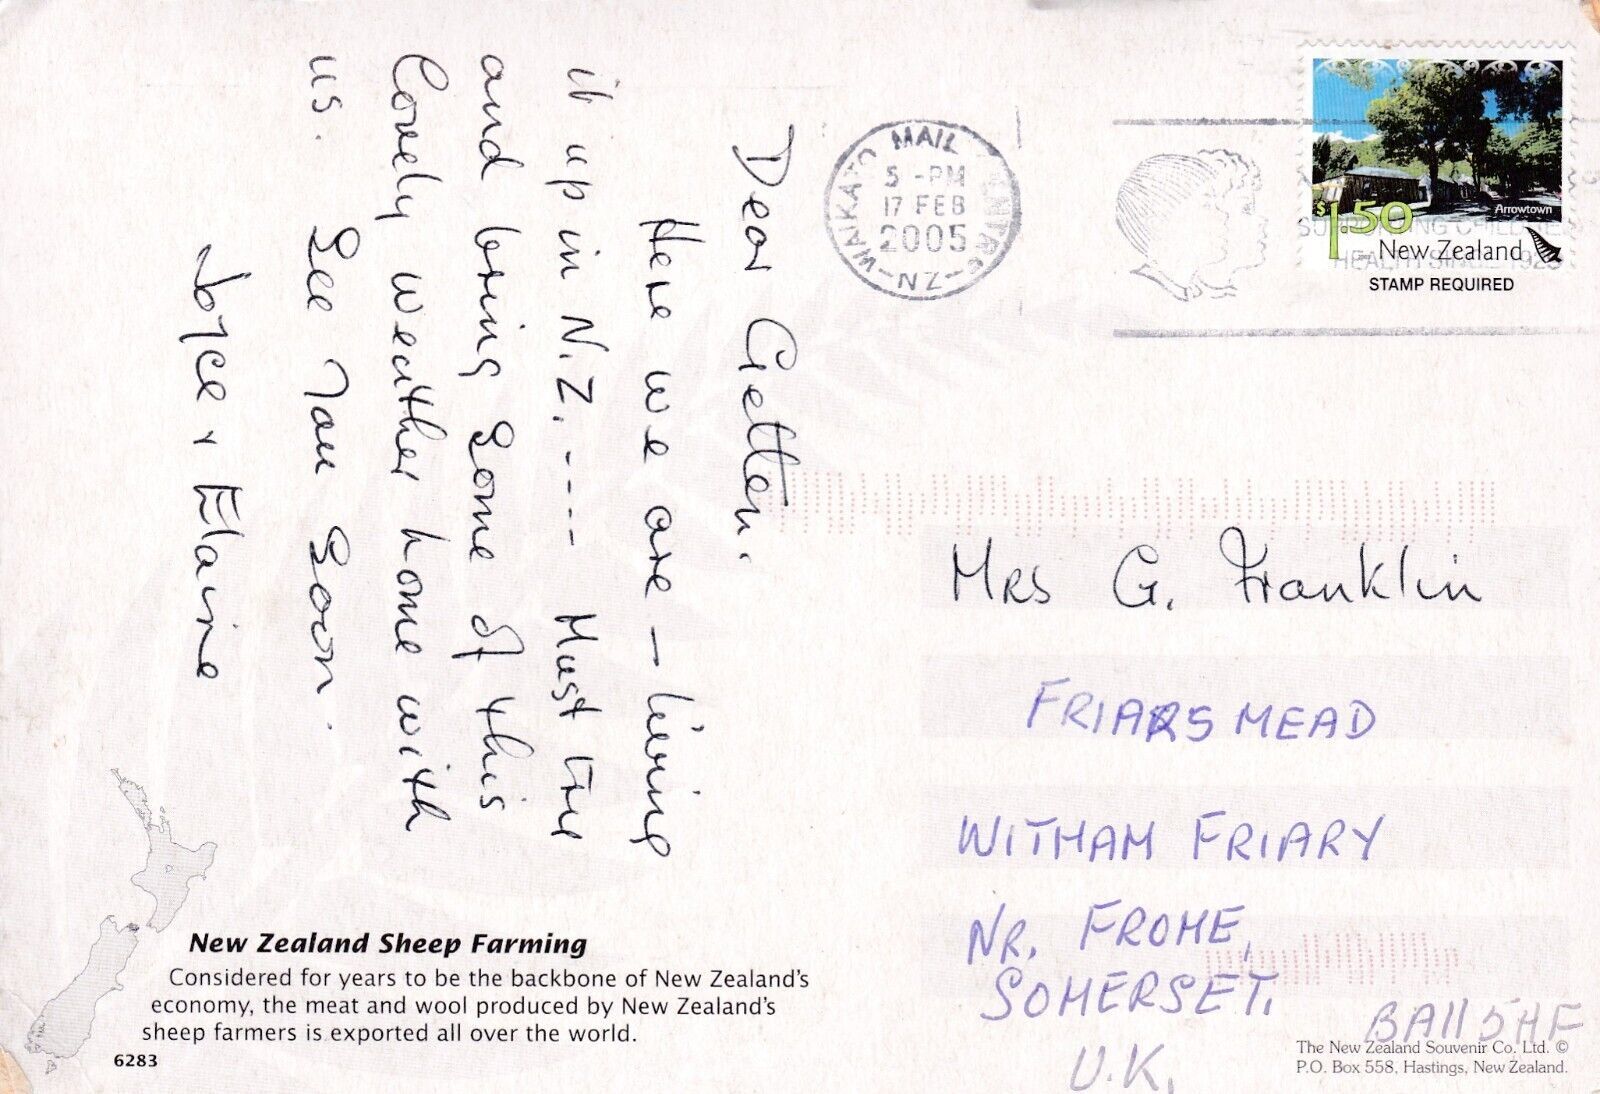 Dear Gretten.
Here we are – living
it up in N.Z. ---- Must try
and bring some of this
lovely weather home with
us. See you soon.
Joyce & Elaine
WAIKATO MAIL CENTRE
5 -PM
17 FEB
2005
-NZ-
SUPPORTING CHILDREN'S
HEALTH SINCE 1929
$1.50
Arrowtown
New Zealand
STAMP REQUIRED
Mrs G. Franklin
FRIARS MEAD
WITHAM FRIARY
NR. FROME,
SOMERSET.
BA11 5HF
U.K.
New Zealand Sheep Farming
Considered for years to be the backbone of New Zealand's
economy, the meat and wool produced by New Zealand's
sheep farmers is exported all over the world.
6283
The New Zealand Souvenir Co. Ltd. ©
P.O. Box 558, Hastings, New Zealand.